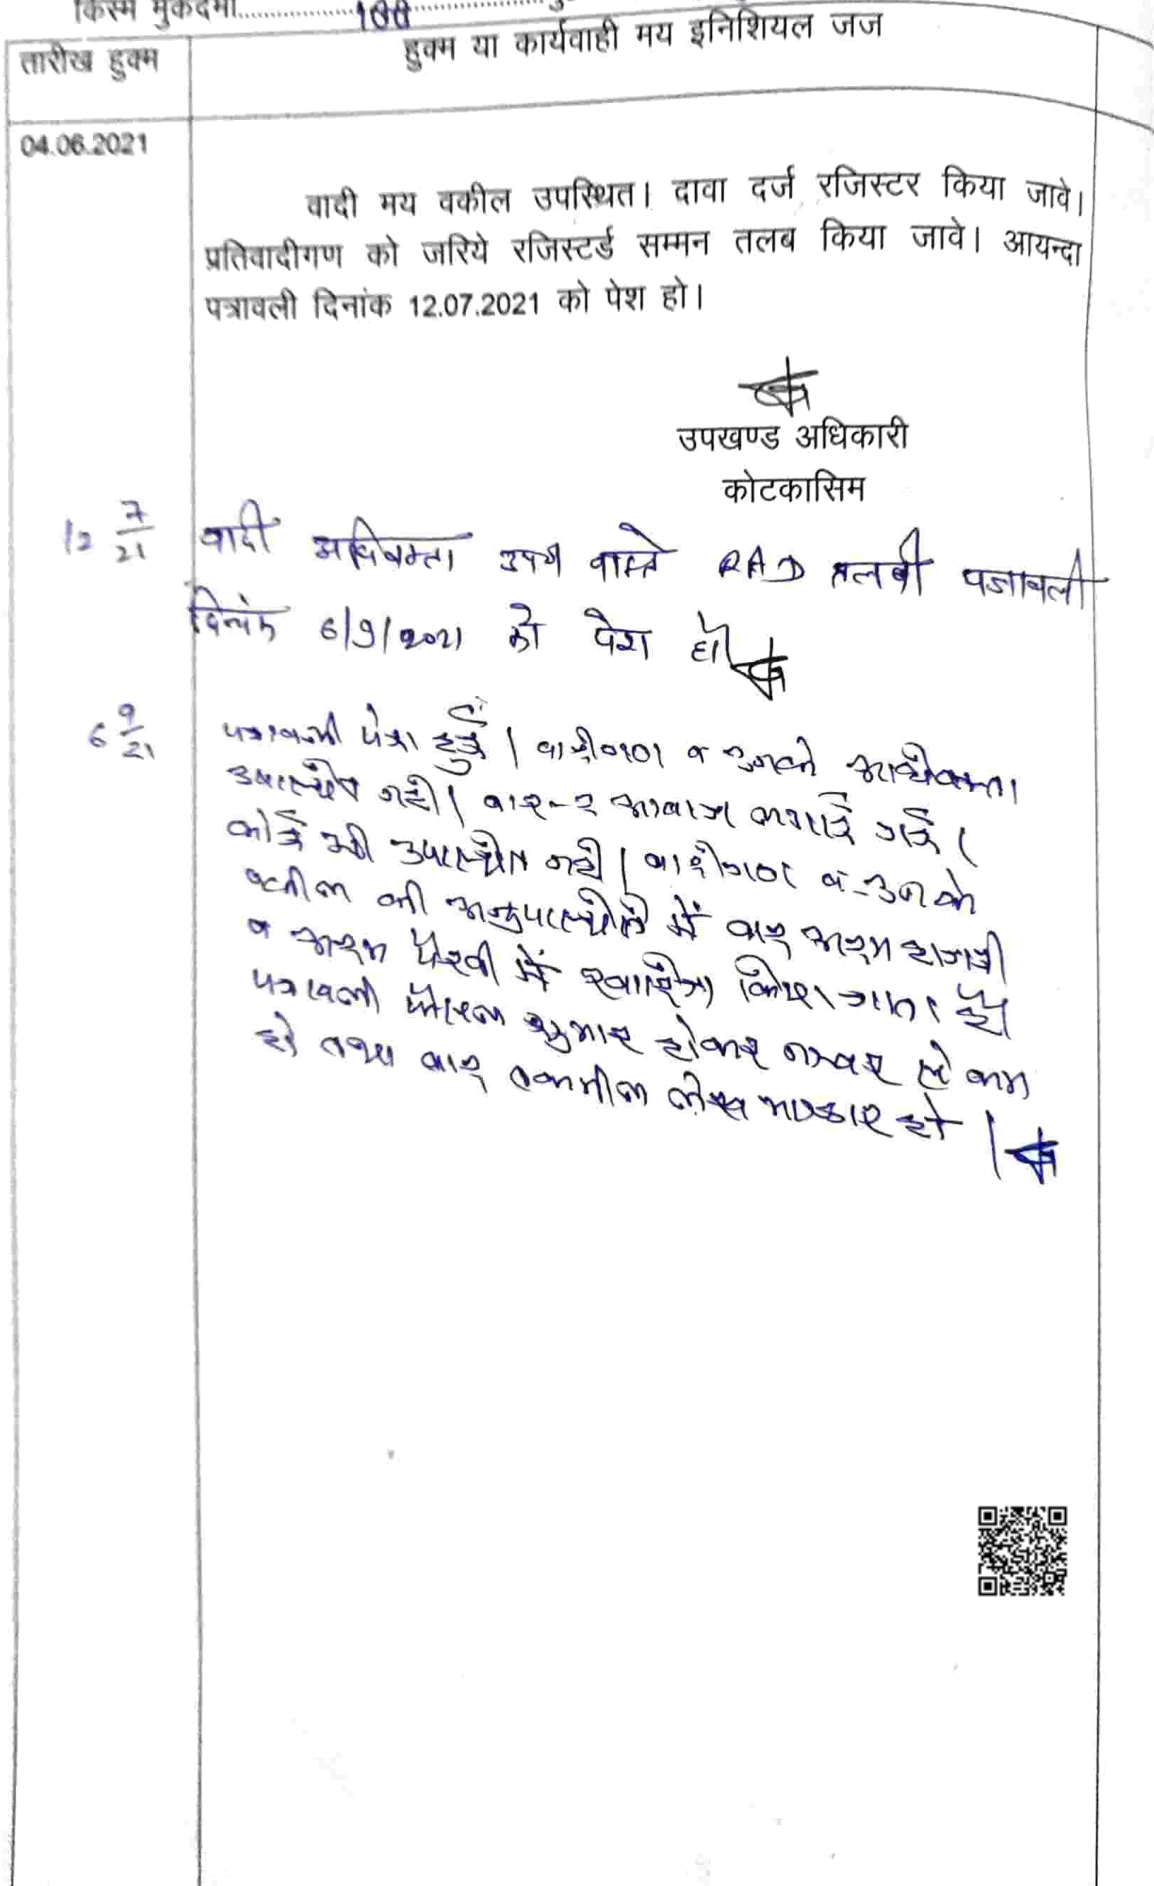 किस्म मुकदमा
हुक्म या कार्यवाही मय इनिशियल जज
तारीख हुक्म
04.06.2021
वादी मय वकील उपस्थित। दावा दर्ज रजिस्टर किया जावे।
प्रतिवादीगण को जरिये रजिस्टर्ड सम्मन तलब किया जावे। आयन्दा
पत्रावली दिनांक 12.07.2021 को पेश हो।
उपखण्ड अधिकारी
कोटकासिम
12 7/21 वादी अधिवक्ता उप॰ वास्ते RAD तलबी पत्रावली
दिनांक 6/9/2021 को पेश हो
6 9/21 पत्रावली पेश हुई। वादीगण व उनके अधिवक्ता
उपस्थित नही। बार-२ आवाज लगाई गई।
कोई भी उपस्थित नही। वादीगण व उनके
वकील की अनुपस्थिति में वाद अदम हाजरी
व अदम पैरवी में खारिज किया जाता है
पत्रावली फैसल शुमार होकर नम्बर से कम
हो तथा बाद तकमील लेख भण्डार हो।